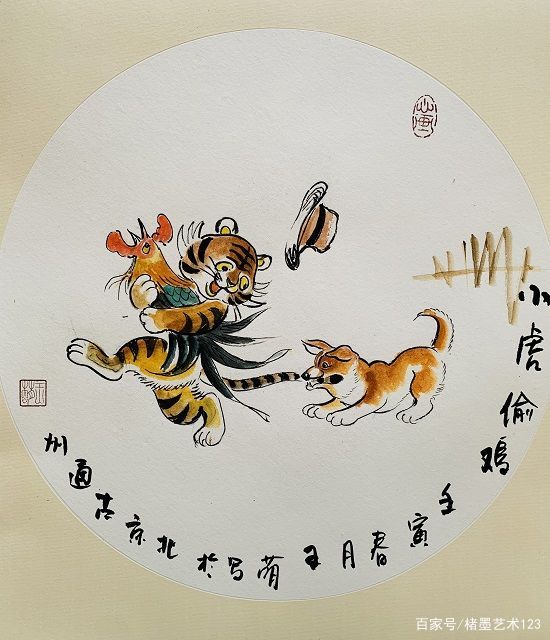 小虎偷鸡 壬寅春月王萌写於北京古通州
百家号/楮墨艺术123